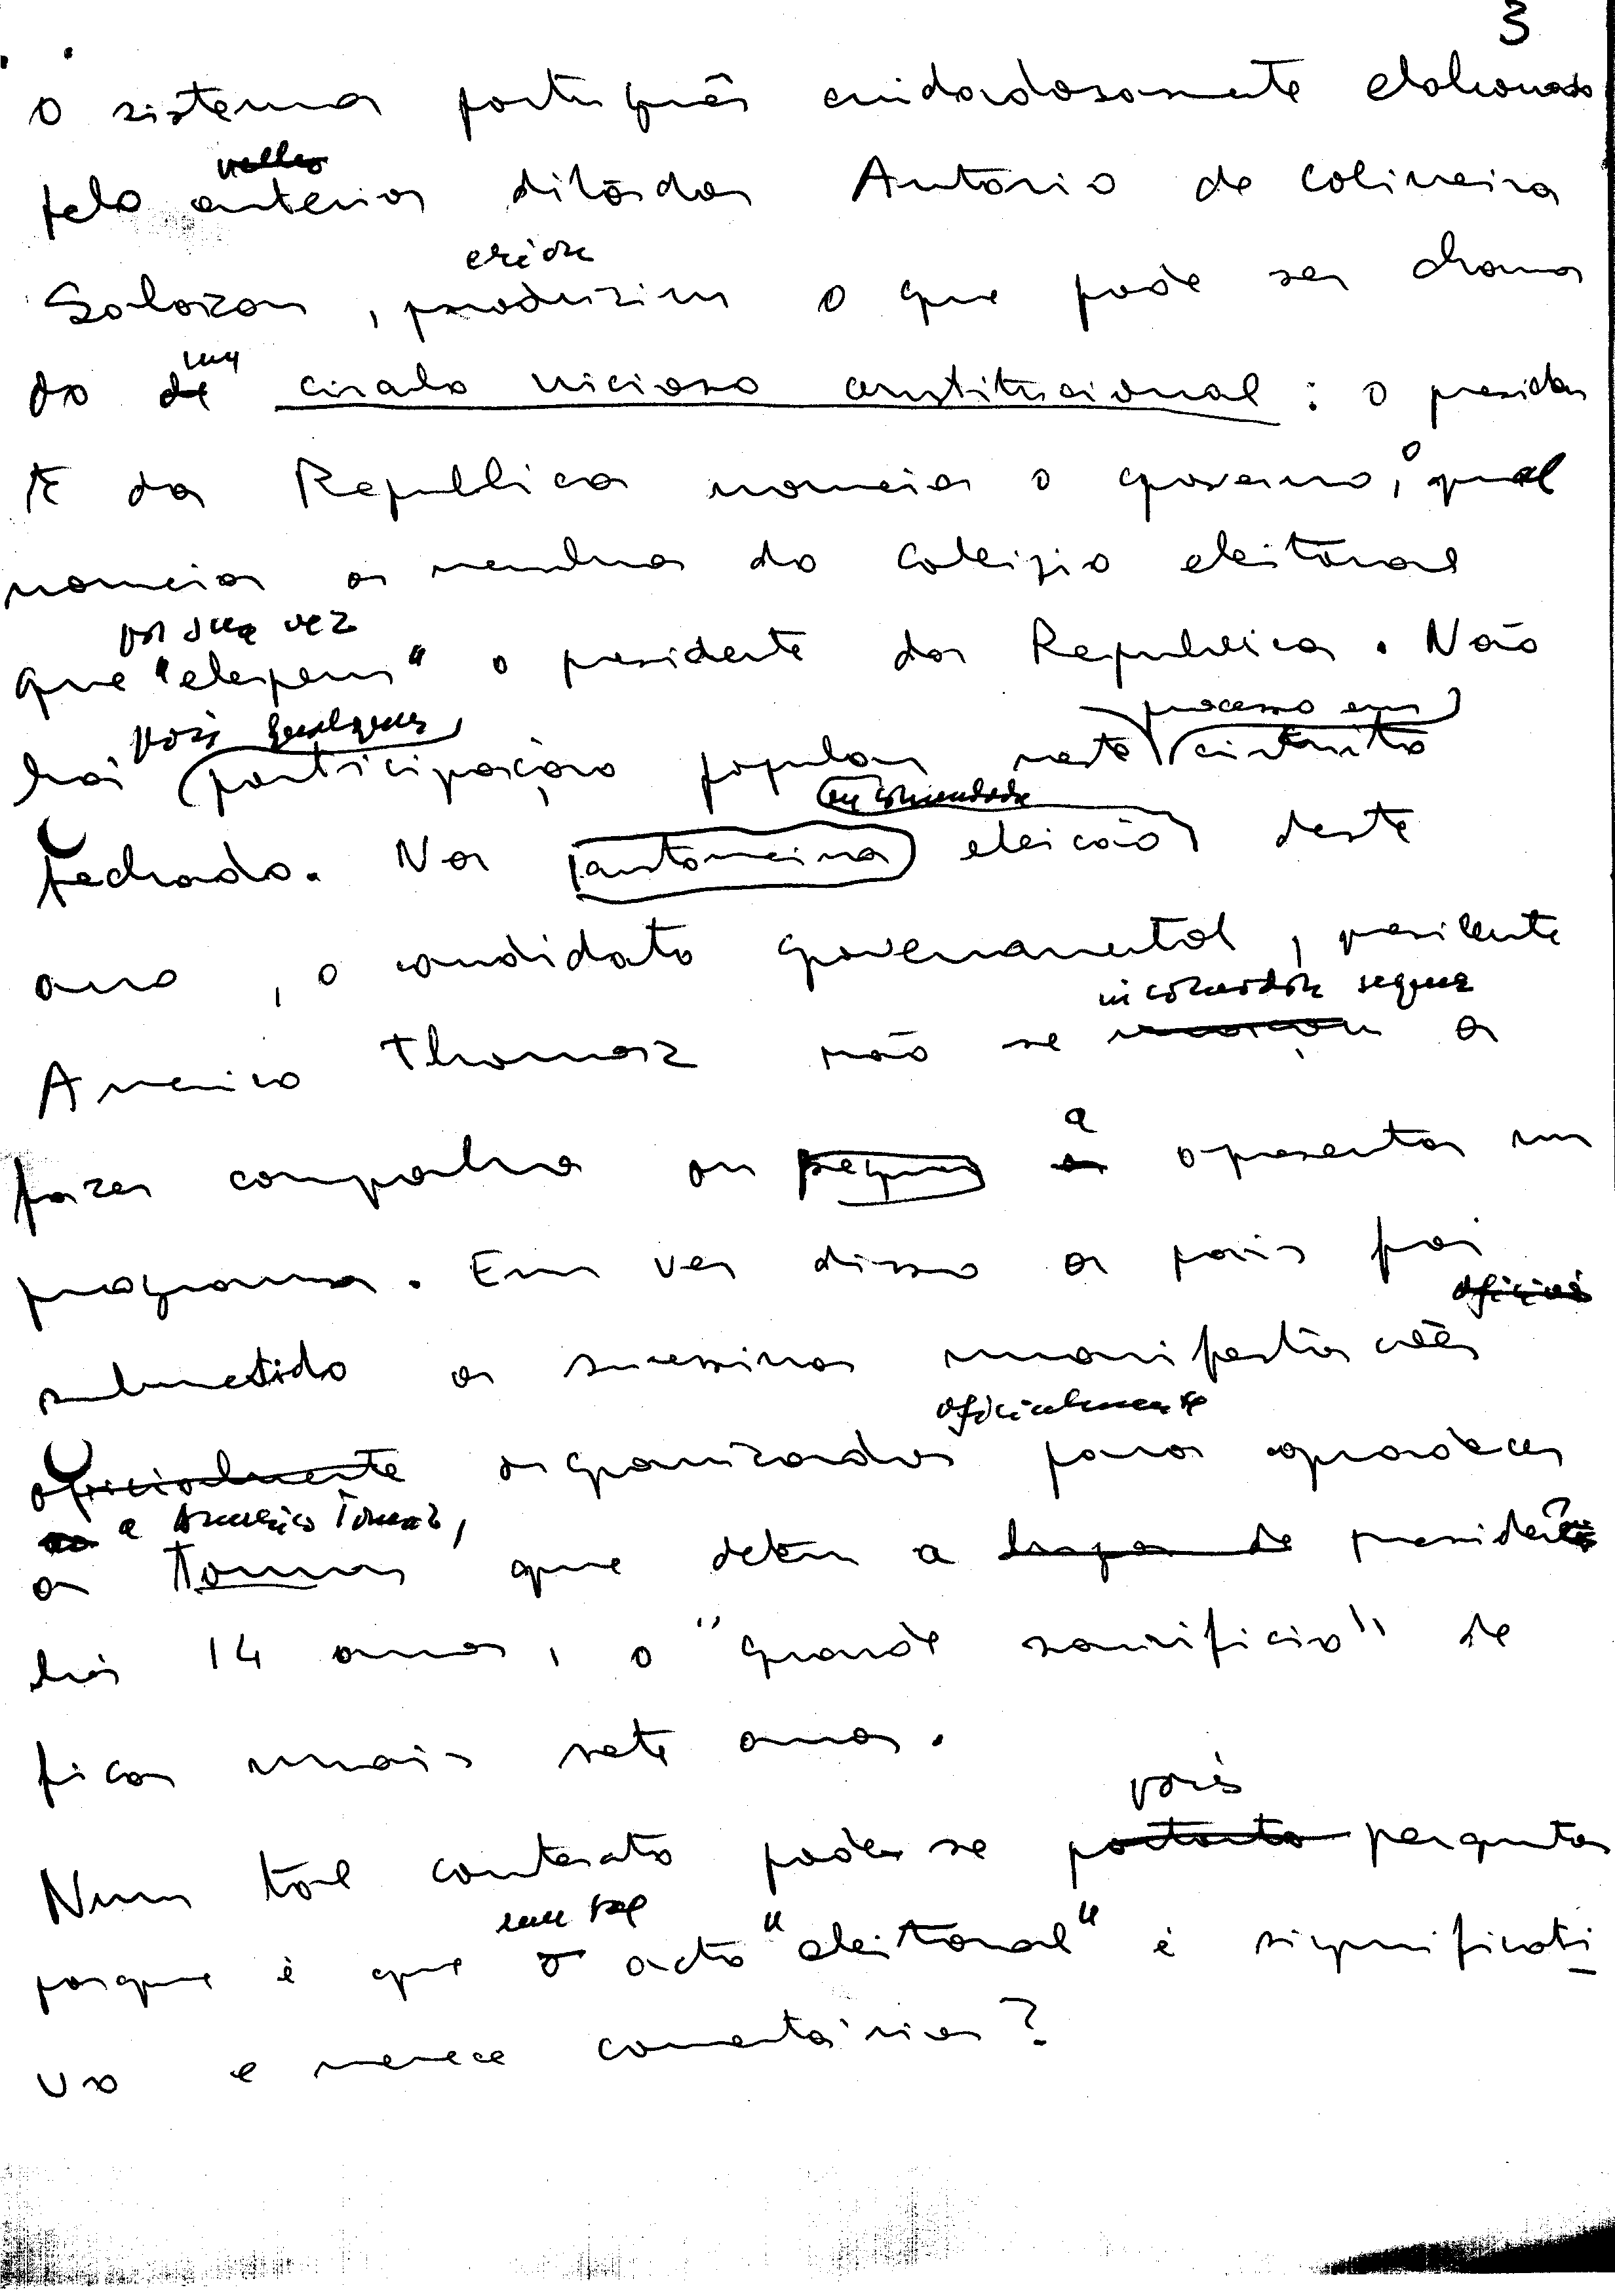 3
O sistema português cuidadosamente elaborado
velho
pelo anterior ditador Antonio de Oliveira
criou
Salazar, produziu o que pode ser chama
um
do de circulo vicioso constitucional : o presiden
te da Republica nomeia o governo, o qual
nomeia os membros do colégio eleitoral
por sua vez
que "elegem" o presidente da Republica. Não
pois qualquer processo em
há participação popular neste circuito
encomendada
fechado. Na eleição deste
ano, o candidato governamental, presidente
incomodou sequer
Americo Thomaz não se a
a
fazer campanha ou sequer a apresentar um
programa. Em vez disso o pais foi
submetido a sucessivas manifestações
oficialmente
oficialmente organizadas para agradecer
a Americo Tomaz,
a Tomas que detem a presidência
há 14 anos, o "grande sacrificio" de
ficar mais sete anos.
pois
Num tal contexto pode-se portanto perguntar
um tal
porque é que o acto "eleitoral" é significati
vo e merece comentários?